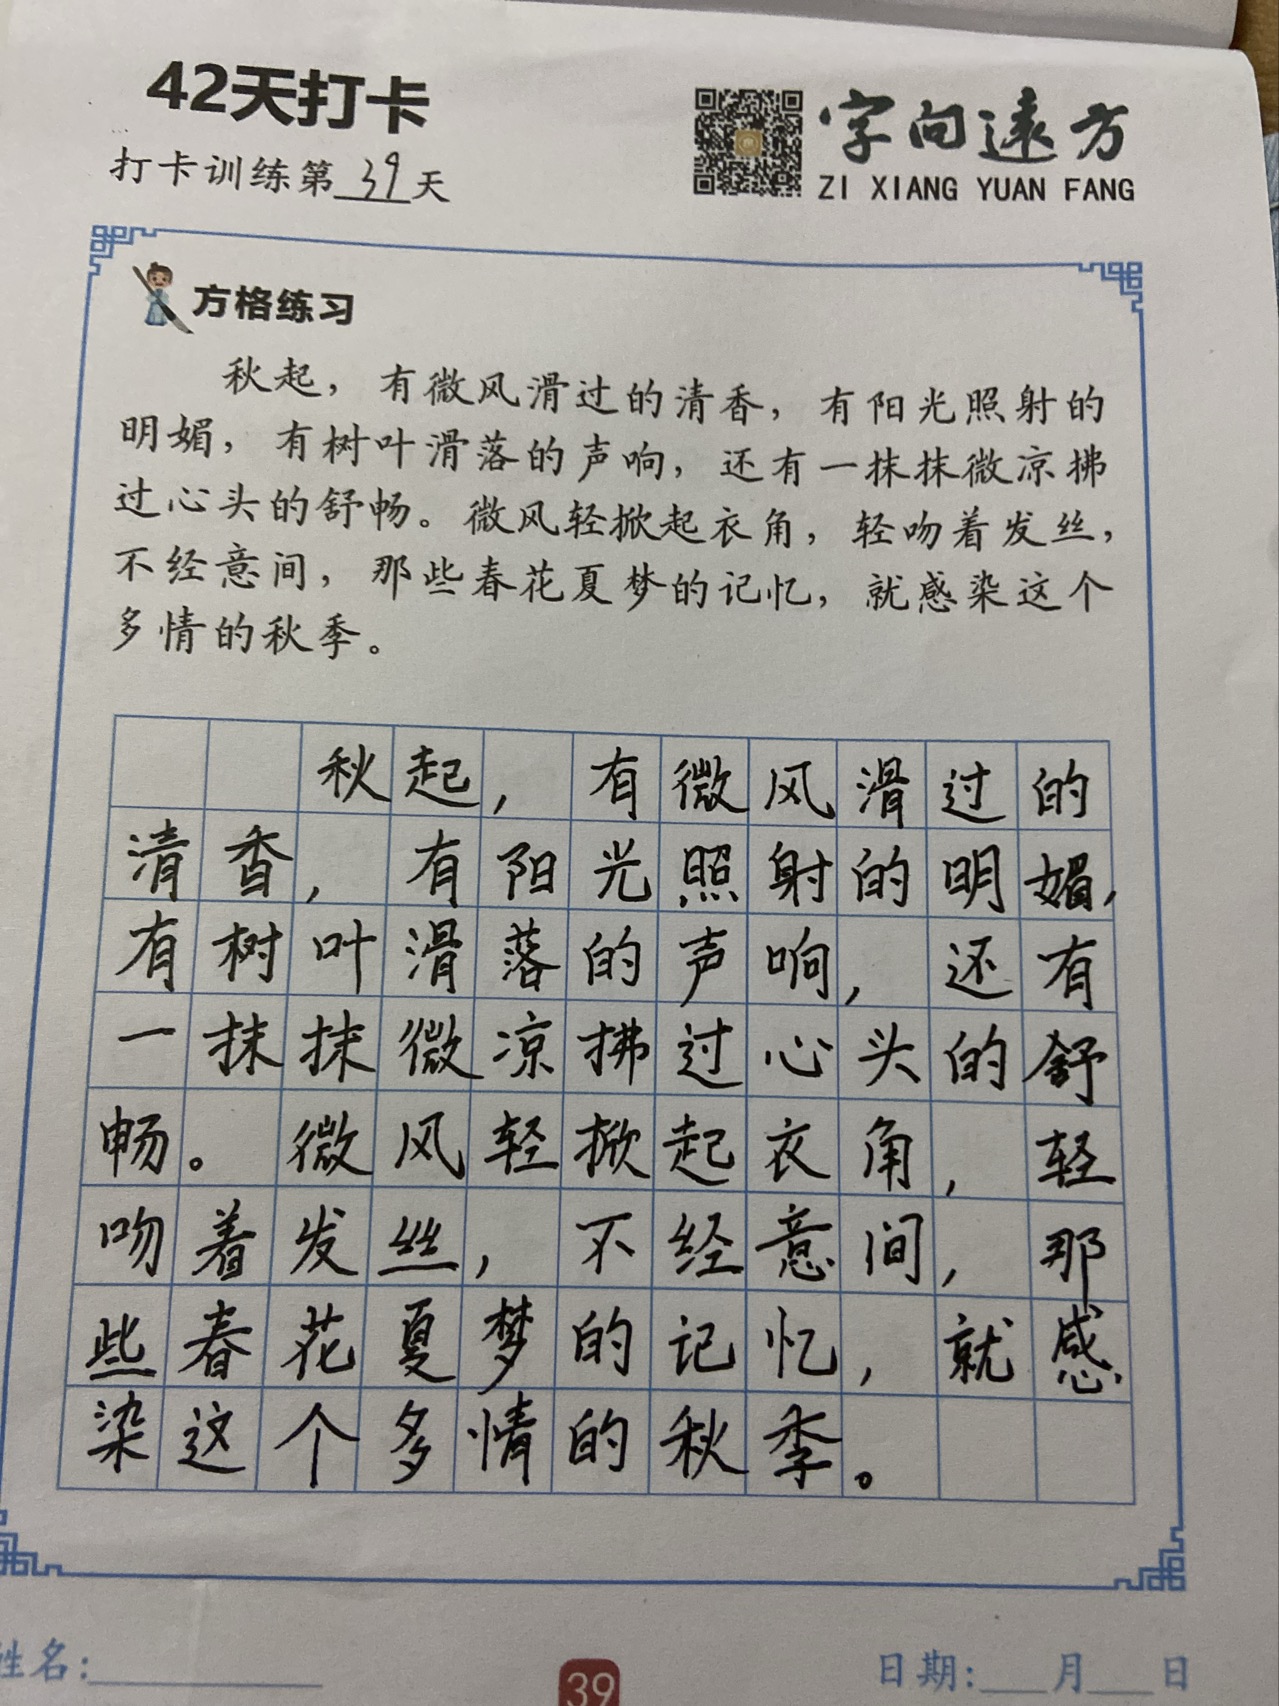 42天打卡
字向遠方
打卡训练第39天
ZI XIANG YUAN FANG
方格练习
秋起，有微风滑过的清香，有阳光照射的
明媚，有树叶滑落的声响，还有一抹抹微凉拂
过心头的舒畅。微风轻掀起衣角，轻吻着发丝，
不经意间，那些春花夏梦的记忆，就感染这个
多情的秋季。
秋起，有微风滑过的
清香，有阳光照射的明媚，
有树叶滑落的声响，还有
一抹抹微凉拂过心头的舒
畅。微风轻掀起衣角，轻
吻着发丝，不经意间，那
些春花夏梦的记忆，就感
染这个多情的秋季。
姓名：
39
日期：月日